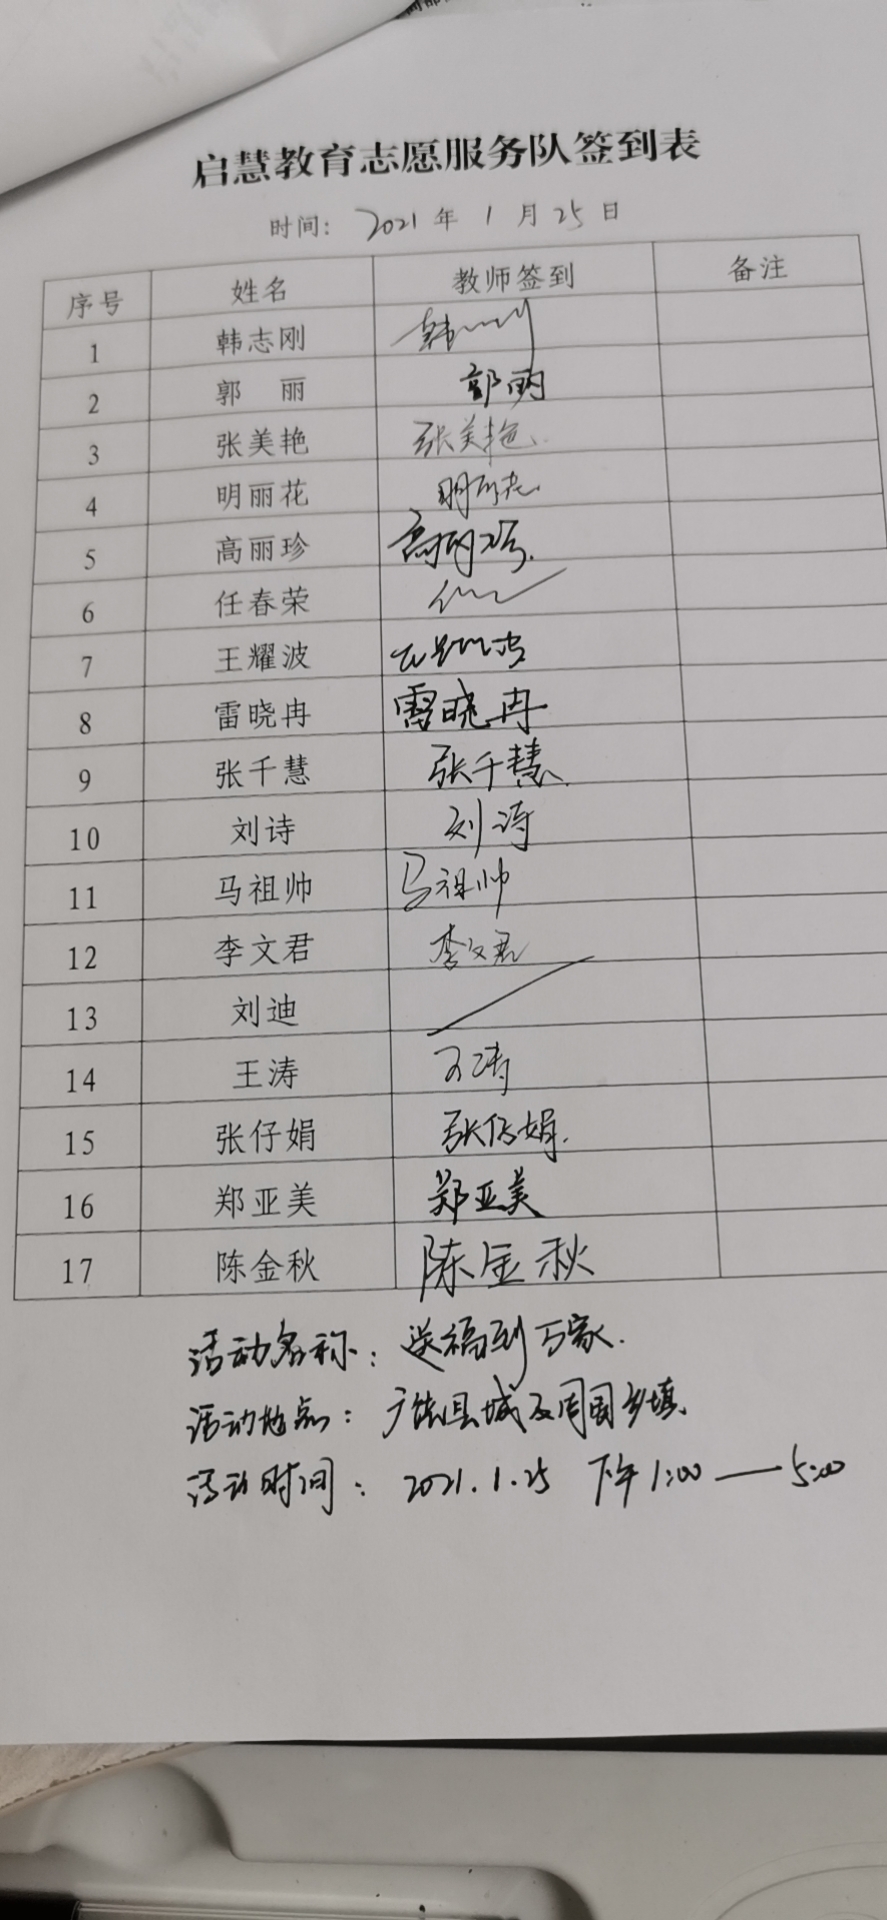 启慧教育志愿服务队签到表
时间: 2021 年 1 月 25 日
序号 姓名 教师签到 备注
1 韩志刚 韩
2 郭 丽 郭丽
3 张美艳 张美艳
4 明丽花 明丽花
5 高丽珍 高丽珍
6 任春荣
7 王耀波
8 雷晓冉 雷晓冉
9 张千慧 张千慧
10 刘诗 刘诗
11 马祖帅 马祖帅
12 李文君 李文君
13 刘迪
14 王涛 王涛
15 张仔娟 张仔娟
16 郑亚美 郑亚美
17 陈金秋 陈金秋
活动名称: 送福到万家.
活动地点: 广饶县城及周围乡镇.
活动时间: 2021.1.25 下午1:00——5:00